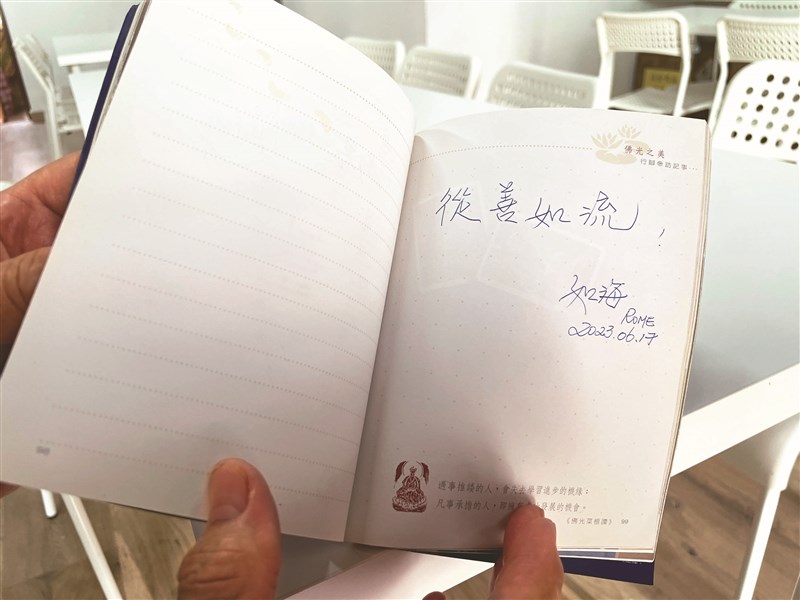 佛光之美
行腳參訪記事
從善如流！
如海
ROME
2023.06.17
遇事推諉的人，會失去學習進步的機緣；
凡事承擔的人，發展的機會。
《佛光菜根譚》 99
98